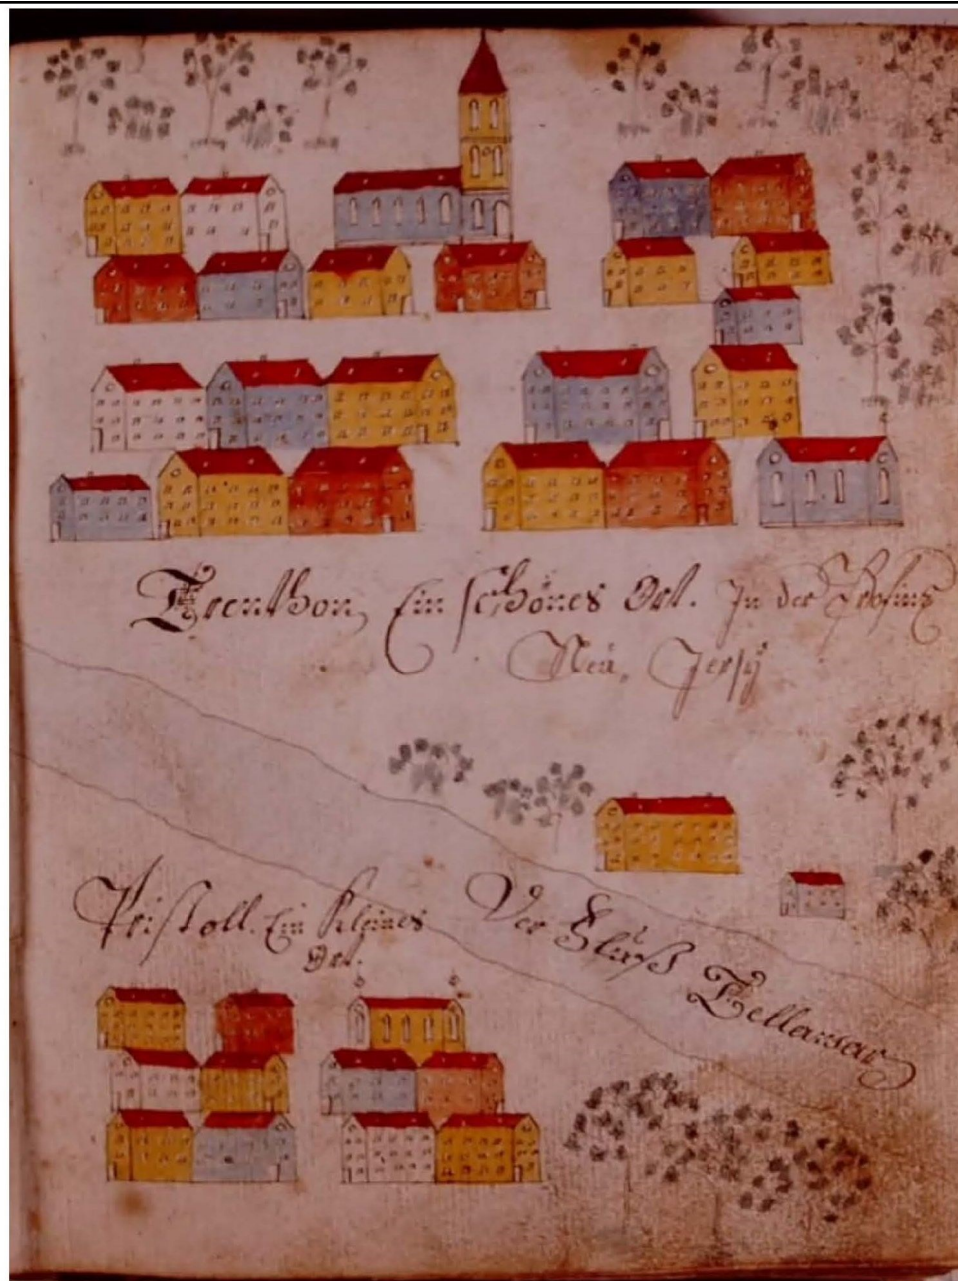 Trenthon, Ein schönes Ort. In der Profins
Neu, Jersÿ
Pristoll. Ein Kleines
Ort.
Der Fluß Tellawar